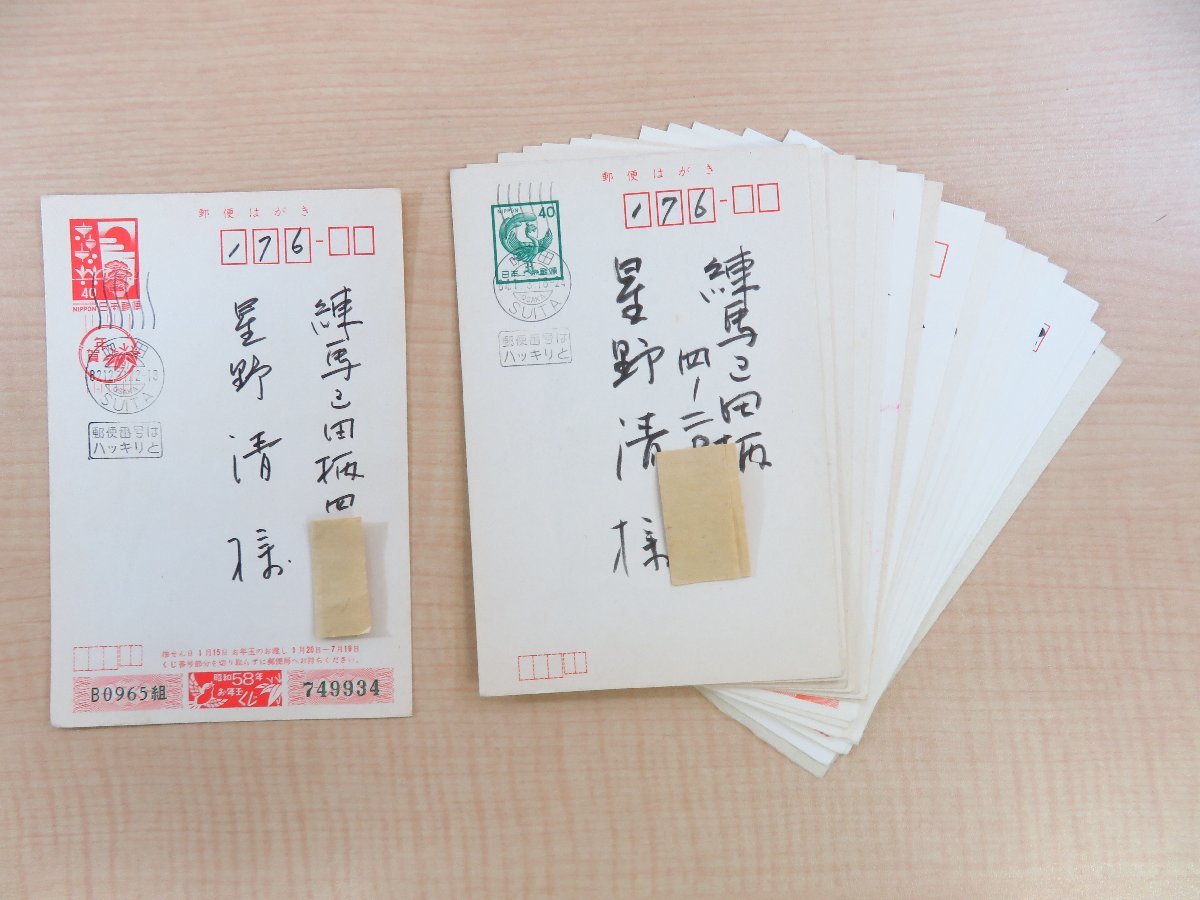 郵便はがき
176-
40
NIPPON 日本郵便
年賀
吹田
82.12.21 12-18
OSAKA
SUITA
郵便番号は
ハッキリと
練馬区田柄四
星野清様
抽せん日 1月15日 お年玉のお渡し 1月20日-7月19日
くじ番号部分を切り取らずに郵便局へお持ちください。
B0965組
昭和58年
お年玉
749934
郵便はがき
176-
NIPPON 40
日本郵便
吹田
OSAKA
SUITA
郵便番号は
ハッキリと
練馬区田柄
四-二
星野清様